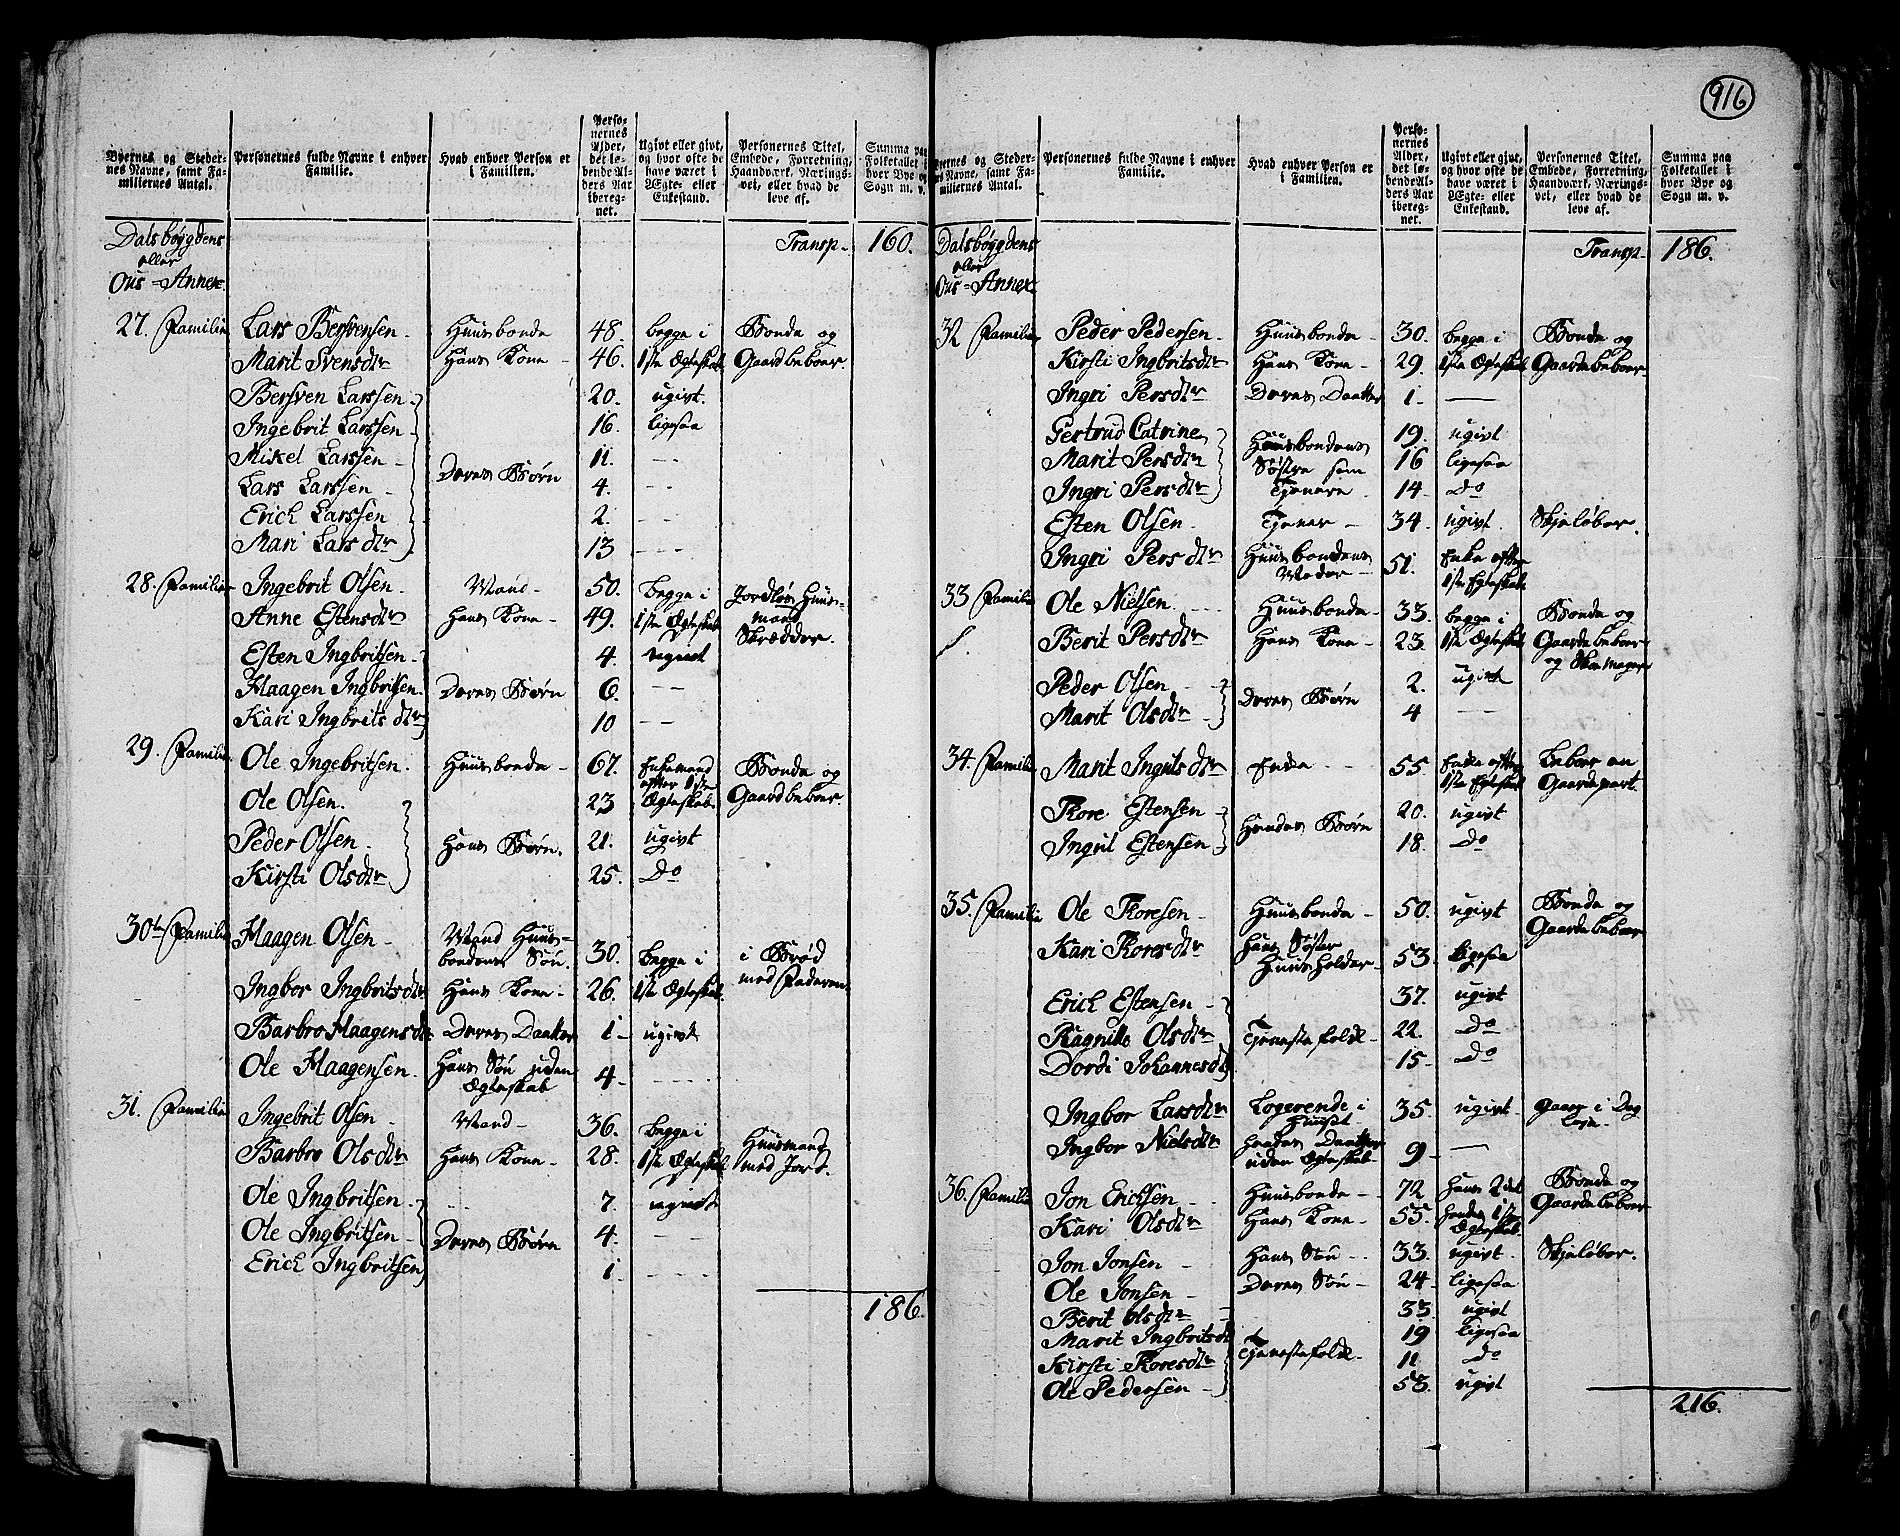 916
Byernes og Stedernes Navne, samt Familiernes Antal.
Personernes fulde Navne i enhver Familie.
Hvad enhver Person er i Familien.
Personernes Alder, det løbende Alders Aar iberegnet.
Ugivt eller givt, og hvor ofte de have været i Ægte- eller Enkestand.
Personernes Titel, Embede, Forretning, Haandværk, Næringsvei, eller hvad de leve af.
Summa paa Folketallet i hver Bye og Sogn m. v.
Dalsbøygdens eller Ous-Annex. Transp. 160.
27. Familie Lars Bersvensen Huusbonde 48. begge i Bonde og
Marit Svensdtr Hans Kone 46. 1ste Ægteskab Gaardbeboer.
Bersven Larssen 20. ugivt.
Ingebrit Larssen 16. ligesaa
Mikel Larssen 11. - -
Lars Larssen Deres Børn 4. - -
Erich Larssen 2. - -
Mari Larsdtr 13 - - -
28. Familie Ingebrit Olsen Mand 50. begge i Jordløs Huus-
Anne Estensdtr Hans Kone 49. 1ste Ægteskab mand
Skrædder.
Esten Ingbritsen 4. ugivt
Haagen Ingbritsen Deres Børn 6. - -
Kari Ingbritsdtr 10 - -
29. Familie Ole Ingebritsen. Huusbonde 67. Enkemand efter 1ste Ægteskab. Bonde og Gaardbeboer.
Ole Olsen. 23
Peder Olsen. Hans Børn. 21. ugivt
Kirsti Olsdtr 25. Do
30te Familie Haagen Olsen Mand Huusbondens Søn. 30. begge i i Brød
Ingbor Ingbritsdtr Hans Kone 26. 1ste Ægteskab. med Faderen
Barbro Haagensdtr Deres Daatter 1 ugivt
Ole Haagensen. Hans Søn uden Ægteskab 4 - - - -
31. Familie Ingebrit Olsen Mand 36. begge i Huusmand
Barbro Olsdtr Hans Kone 28. 1ste Ægteskab med Jord.
Ole Ingbritsen 7. ugivt
Ole Ingbritsen Deres Børn 4. - -
Erich Ingbritsen 1 - - -
186.
Byernes og Stedernes Navne, samt Familiernes Antal.
Personernes fulde Navne i enhver Familie.
Hvad enhver Person er i Familien.
Personernes Alder, det løbende Alders Aar iberegnet.
Ugivt eller givt, og hvor ofte de have været i Ægte- eller Enkestand.
Personernes Titel, Embede, Forretning, Haandværk, Næringsvei, eller hvad de leve af.
Summa paa Folketallet i hver Bye og Sogn m. v.
Dalsbøygdens eller Ous-Annex Transp. 186.
32 Familie Peder Pedersen Huusbonde 30. begge i Bonde og
Kirsti Ingbritsdtr Hans Kone 29. 1ste Ægteskab Gaardebeboer
Ingri Persdtr Deres Daatter 1
Gertrud Catrine Huusbondens 19. ugivt
Marit Persdtr Søstre som 16 ligesaa
Ingri Persdtr Tjenere 14 Do
Esten Olsen. Tjener 34. ugivt. Skieløber.
Ingri Persdtr Huusbondens Moder 51. Enke efter 1ste Egteskab
33 Familie Ole Nielsen. Huusbonde 33. begge i Bonde og
Berit Persdtr Hans Kone 23. 1ste Ægteskab Gaardebeboer og Skomager
Peder Olsen Deres Børn 2. ugivt
Marit Olsdtr 4
34. Familie Marit Ingulsdtr Enke 55 Enke efter 1ste Egteskab Beboer en Gaardepart.
Tore Estensen Hendes Børn 20. ugivt
Ingul Estensen 18. Do
35. Familie Ole Toresen Huusbonde 50. ugivt Bonde og Gaardebeboer
Kari Toresdtr Hans Søster Huusholder 53. ligesaa
Erich Estensen 37. ugivt
Ragnille Olsdtr Tjenestefolk 22. Do
Dordi Johannesd 15 Do
Ingbor Larsdtr Logerende i Huuset 35. ugivt. Gaaer i Dag
Ingbor Nielsdtr Hendes Daatter uden Ægteskab 9
36. Familie Jon Erichsen Huusbonde 72 Hans 2det Bonde og
Kari Olsdtr Hans Kone 55. hendes 1ste Ægteskab. Gaardebeboer
Jon Jonsen Hans Søn 33. ugivt. Skieløber.
Ole Jonsen Deres Søn 24 ligesaa
Berit Olsdtr 33 ugivt
Marit Ingbritsd 19 ligesaa
Kirsti Toresdtr Tjenestefolk 11 Do
Ole Pedersen 53. ugivt
216.